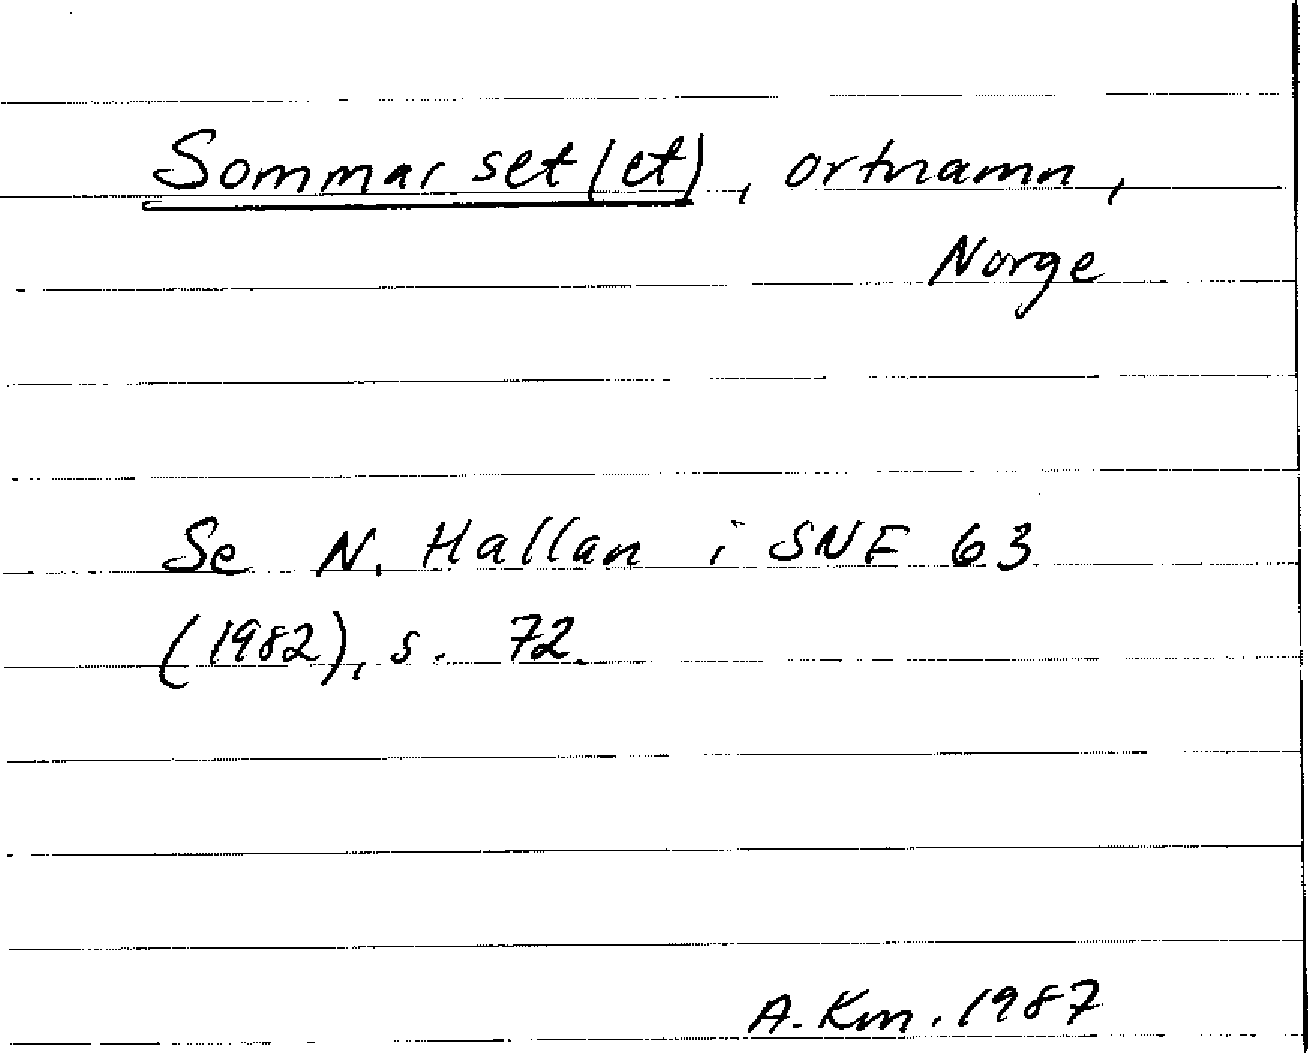 Sommarset(et), ortnamn,
Norge
Se N. Hallan i SNF 63
(1982), s. 72.
A. Km. 1987